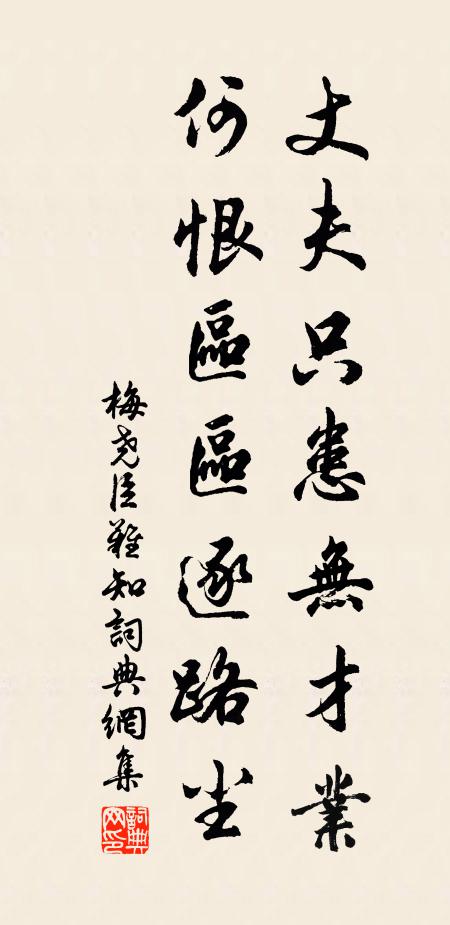 丈夫只患無才業
何恨區區逐路尘
梅尧臣難知詞典網集
詞典网印